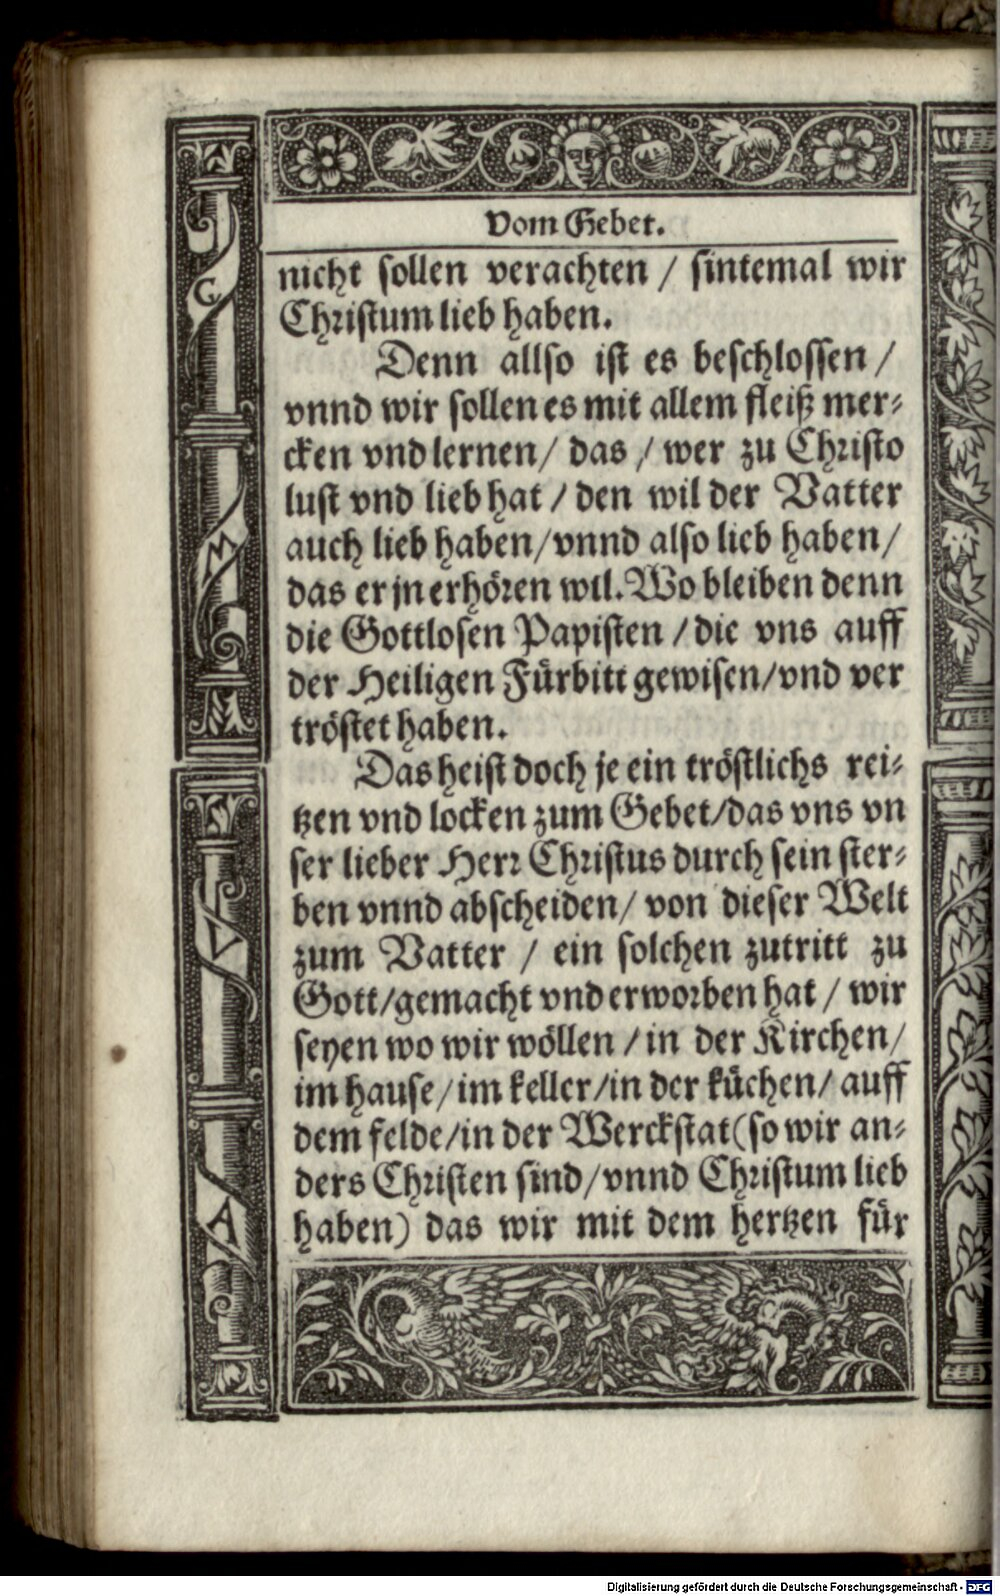 Vom Gebet.
nicht sollen verachten / sintemal wir
Christum lieb haben.
Denn allso ist es beschlossen /
vnnd wir sollen es mit allem fleiß mer⸗
cken vnd lernen / das / wer zu Christo
lust vnd lieb hat / den wil der Vatter
auch lieb haben / vnnd also lieb haben /
das er jn erhören wil. Wo bleiben denn
die Gottlosen Papisten / die vns auff
der Heiligen Fürbitt gewisen / vnd ver
tröstet haben.
Das heist doch je ein tröstlichs rei⸗
tzen vnd locken zum Gebet / das vns vn
ser lieber Herr Christus durch sein ster⸗
ben vnnd abscheiden / von dieser Welt
zum Vatter / ein solchen zutritt zu
Gott / gemacht vnd erworben hat / wir
seyen wo wir wöllen / in der Kirchen /
im hause / im keller / in der küchen / auff
dem felde / in der Werckstat (so wir an⸗
ders Christen sind / vnnd Christum lieb
haben) das wir mit dem hertzen für
G
M
V
A
Digitalisierung gefördert durch die Deutsche Forschungsgemeinschaft - DFG